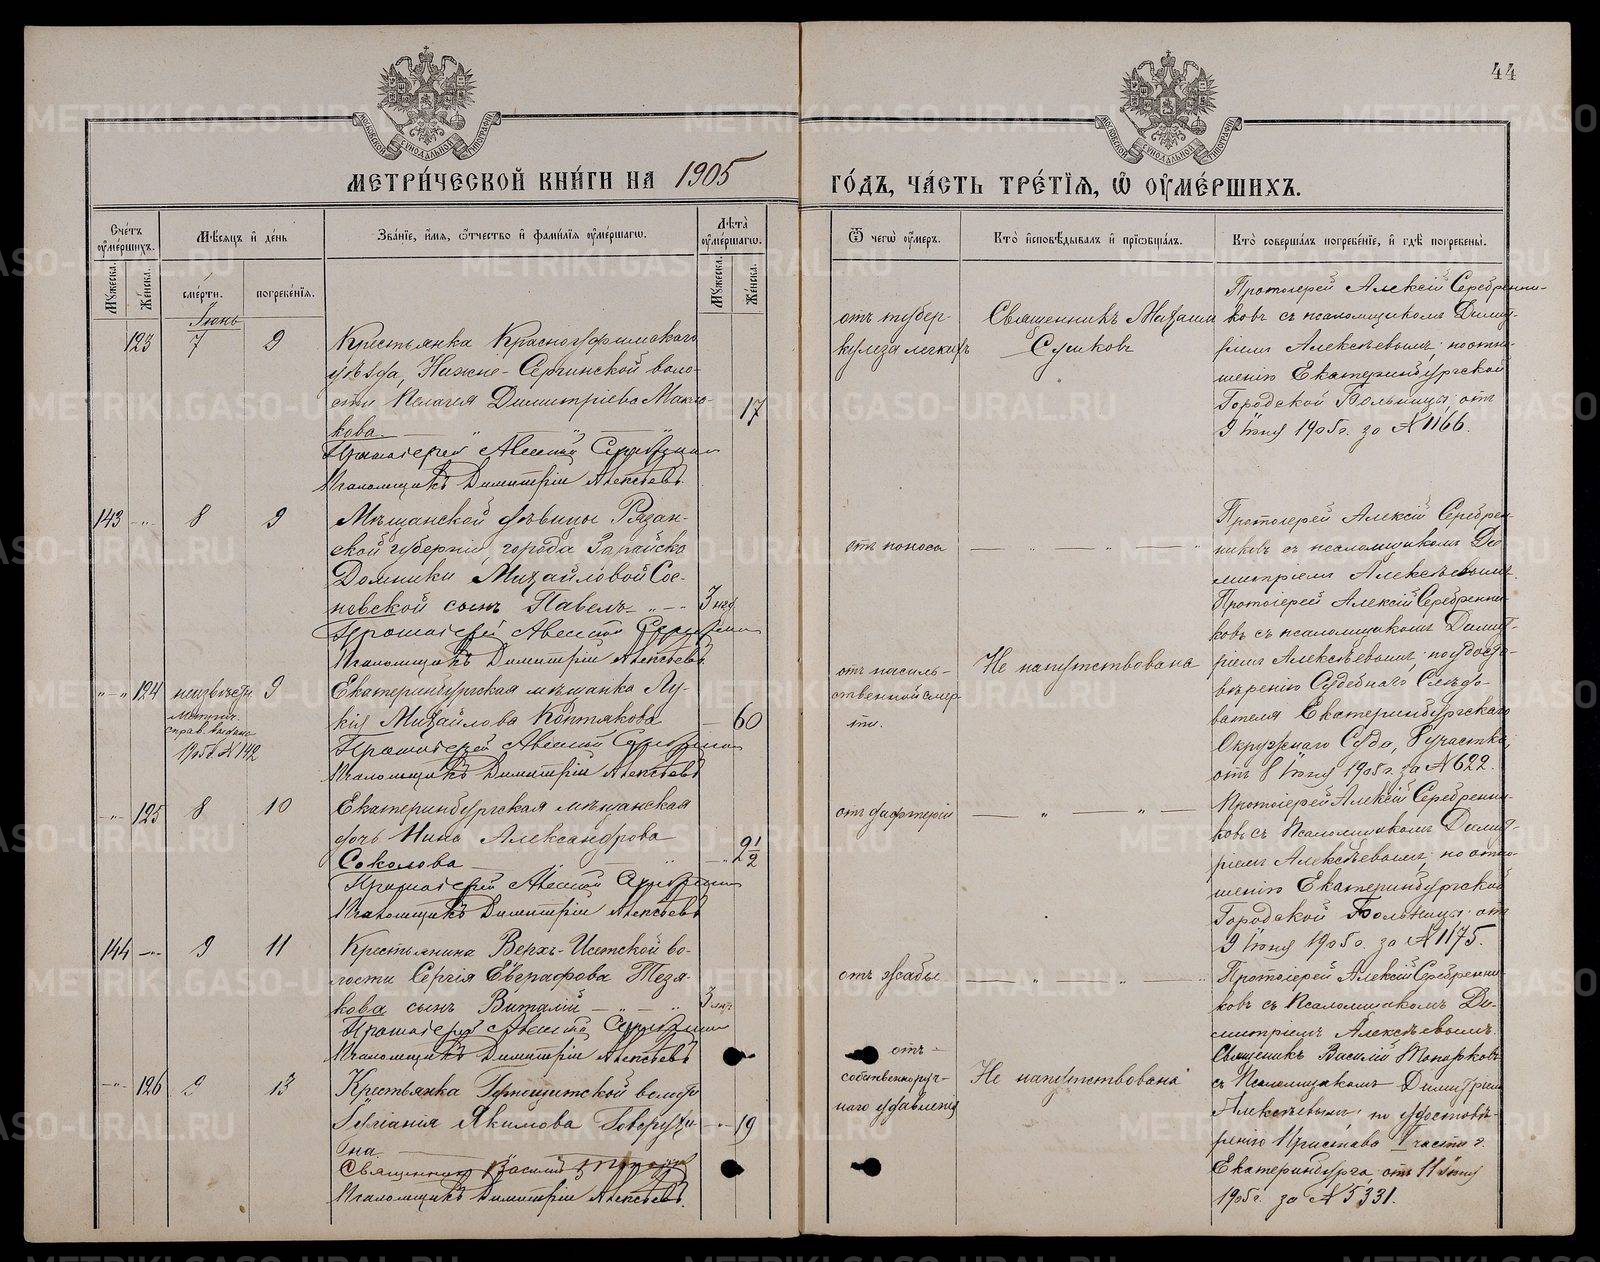 44
МЕТРИ́ЧЕСКОЙ КНИ́ГИ НА 1905
ГО́ДЪ, ЧА́СТЬ ТРЕ́ТІѦ, Ѿ ОУМЕ́РШИХЪ.
Сче́тъ оумершихъ.
Мѣсяцъ и де́нь
Зва́ніе, и́мя, ѻтчество и фами́лія оуме́ршагѡ.
Лѣта̀ оуме́ршагѡ.
Ѿ чегѡ оу́меръ.
Кто̀ исповѣ́дывалъ и приѡбща́лъ.
Кто̀ соверша́лъ погребе́ніе, и гдѣ̀ погребены̀.
Мужеска.
Женска.
сме́рти.
погребе́нія.
Мужеска.
Женска.
Іюнь
123
7
9
Крестьянка Красноуфимскаго
уѣзда, Нижне-Сергинской воло-
сти Пелагея Димитріева
кова
17
Протоіерей Алексій Серебренниковъ
Псаломщикъ Димитрій Алексѣевъ
отъ тубер-
кулеза легкихъ
Священникъ Михаилъ
Сушковъ
Протоіерей Алексій Серебренни-
ковъ съ псаломщикомъ Димит-
ріемъ Алексѣевымъ; по отно-
шенію Екатеринбургской
Городской Больницы, отъ
9 Іюня 1905 г. за №1166.
143
8
9
Мѣщанской дѣвицы Рязан-
ской губерніи, города Зарайска
Домники Михайловой Сос-
новской сынъ Павелъ
3 нед
Протоіерей Алексій Серебренниковъ
Псаломщикъ Димитрій Алексѣевъ
отъ поноса
Протоіерей Алексій Серебрен-
никовъ съ псаломщикомъ Ди-
митріемъ Алексѣевымъ.
124
неизвѣстн
9
Метрич.
справ. выдана
№ 142
Екатеринбургская мѣщанка Лу-
кія Михайлова Коптякова
60
Протоіерей Алексій Серебренниковъ
Псаломщикъ Димитрій Алексѣевъ
отъ насиль-
ственной смер-
ти.
Не напутствована
Протоіерей Алексій Серебренни-
ковъ съ псаломщикомъ Димит-
ріемъ Алексѣевымъ; по удосто-
вѣренію Судебнаго Слѣдо-
вателя Екатеринбургскаго
Окружнаго Суда, 8 участка,
отъ 8 Іюня 1905 г. за №622.
125
8
10
Екатеринбургская мѣщанская
дочь Нина Александрова
Соколова
2 1/2
Протоіерей Алексій Серебренниковъ
Псаломщикъ Димитрій Алексѣевъ
отъ дифтеріи
Протоіерей Алексій Серебренни-
ковъ съ Псаломщикомъ Димит-
ріемъ Алексѣевымъ; по отно-
шенію Екатеринбургской
Городской Больницы отъ
9 Іюня 1905 г. за №1175.
144
9
11
Крестьянина Верхъ-Исетской во-
лости Сергія Евграфова Тезя-
кова сынъ Виталій
3
Протоіерей Алексій Серебренниковъ
Псаломщикъ Димитрій Алексѣевъ
отъ жабы
Протоіерей Алексій Серебренни-
ковъ съ Псаломщикомъ Ди-
митріемъ Алексѣевымъ.
126
9
13
Крестьянка волости
Якимова Говорухи-
на
19
Священникъ Василій Топорковъ
Псаломщикъ Димитрій Алексѣевъ.
отъ
собственноруч-
наго удавленія
Не напутствована
Священникъ Василій Топорковъ
съ Псаломщикомъ Димитріемъ
Алексѣевымъ; по удостовѣ-
ренію Пристава I части г.
Екатеринбурга отъ 11 Іюня
1905 г. за №5331.
METRIKI.GASO-URAL.RU